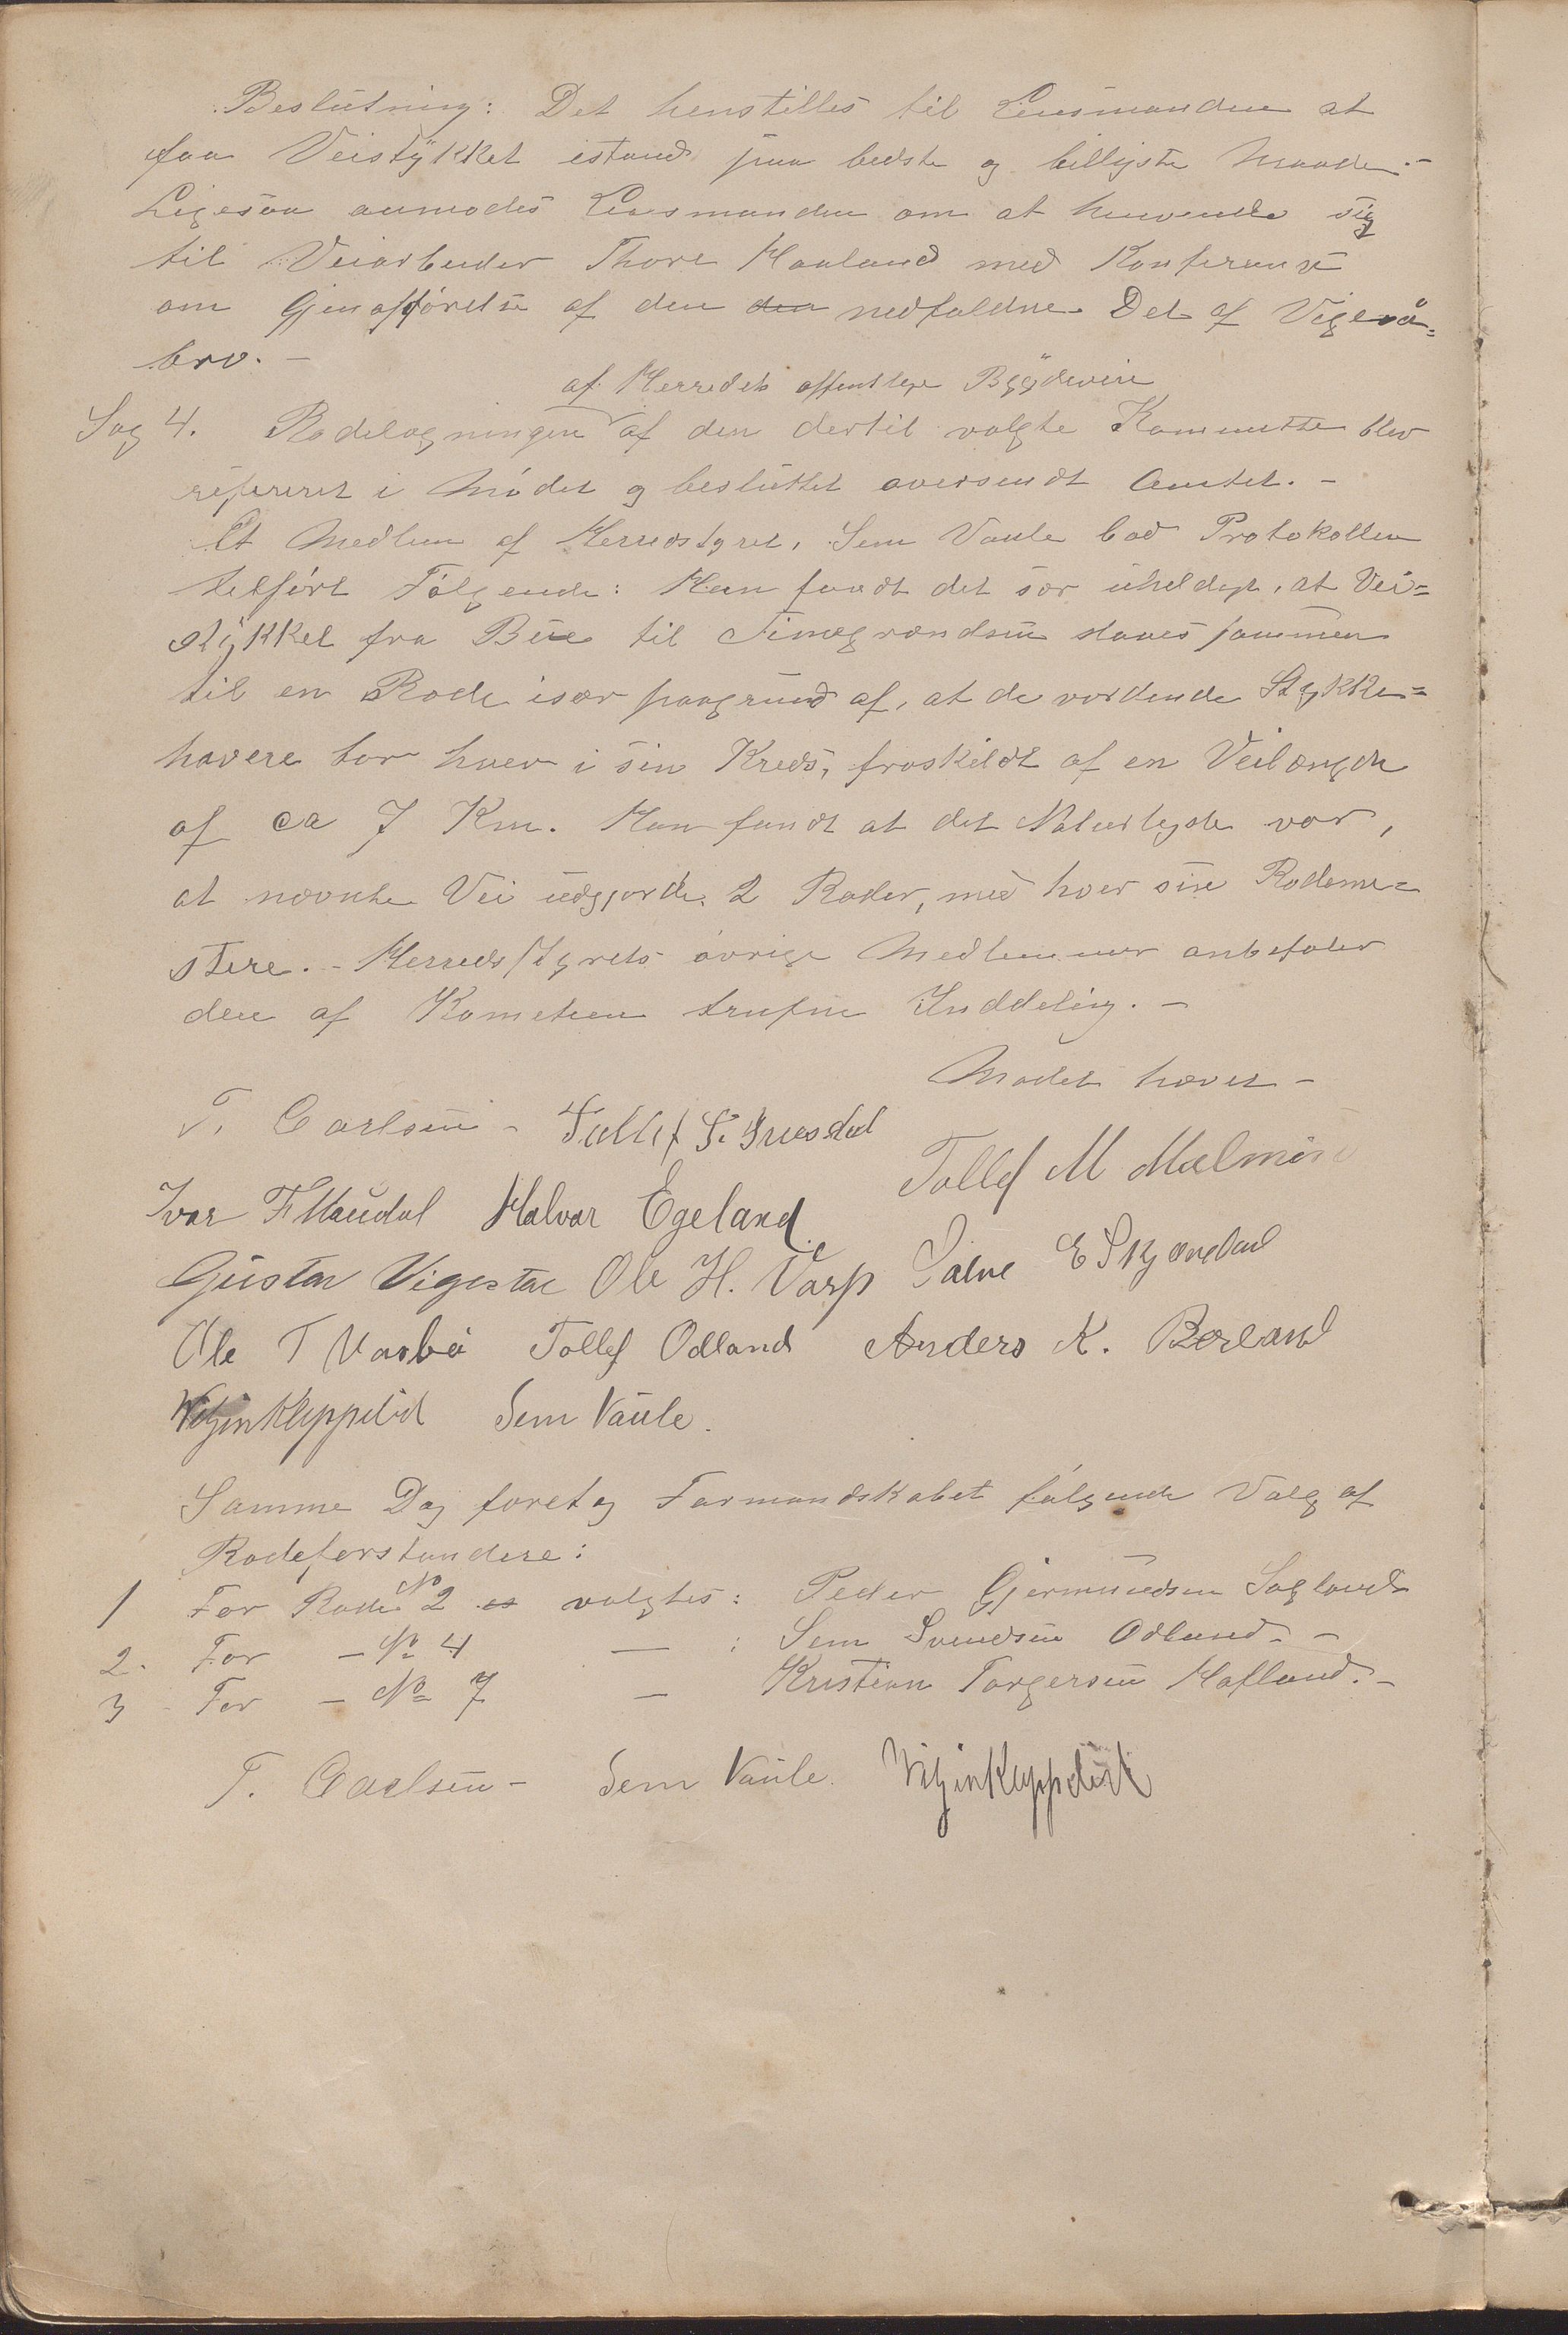 Beslutning: Det henstilles til Lensmanden at
faa Veistykket istand paa bedste og billigste Maade.-
Ligesaa anmodes Lensmanden om at henvende sig
til Veiarbeider Thore Haaland med Konferanse
om Gjenopførelse af den den nedfaldne Del af Vigeså=
bro. -
af Herredets offentlige Bygdeveie
Sag 4. Rodelægningen af den dertil valgte Kommitte blev
refereret i Mødet og besluttet oversendt Amtet. -
Et Medlem af Herredstyret, Sem Vaule bad Protokollen
tilført Følgende: Han fandt det sær uheldigt, at Vei=
stykket fra Bue til Timegrændsen slaaes sammen
til en Rode især paagrund af, at de vordende Stykke=
havere bor hver i sin Kreds, fraskildt af en Veilængde
af ca 7 Km. Han fandt at det Naturligste var,
at nævnte Vei udgjorde 2 Roder, med hver sine Rodeme=
stere. - Herredsstyrets øvrige Medlemmer anbefaler
den af Kometeen trufne Inddeling. -
Mødet hævet -
T. Carlsen - Tollef S.
Tollef M Malmin
Ivar F Maudal Halvor Egeland
Gustav Vigestøe Ole H. Varp Salve E Skjævdal
Ole T Vasbø Tollef Odland Anders K. Bærland
Sem Vaule.
Samme Dag foretog Formandskabet følgende Valg af
Rodeforstandere:
1 For Rode No 2 valgtes: Peder Gjermundsen Sagland
2. For - No 4 - : Sem Svendsen Odland. -
3 For - No 7 - Kristian Torgersen Hafland. -
T. Carlsen - Sem Vaule.